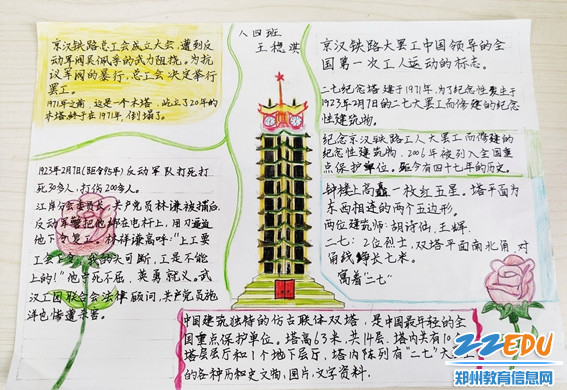 八四班
王想淇
京汉铁路总工会成立大会，遭到反
动军阀吴佩孚的武力阻挠。为抗
议军阀的暴行，总工会决定举行
罢工。
1971年之前，这是一个木塔，屹立了20年的
木塔终于在1971年，倒塌了。
1923年2月7日(距今95年)反动军队打死打
死30多人，打伤200多人。
江岸分会委员长，共产党员林谦被捕后
反动军警把他绑在电杆上，用刀逼迫
他下令复工。林祥谦高呼："上工要
工会上命，我的头可断，工是不能
上的！"他宁死不屈，英勇就义。武
汉工团联合会法律顾问，共产党员施
洋也惨遭杀害。
京汉铁路大罢工中国领导的全
国第一次工人运动的标志。
二七纪念塔建于1971年，为了纪念性发生于
1923年2月7日的二七大罢工而修建的纪念
性建筑物。
纪念京汉铁路工人大罢工而修建的
纪念性建筑物，2006年被列入全国重
点保护单位，距今有四十七年的历史。
钟楼上高矗一枚红五星，塔平面为
东西相连的两个五边形。
两位建筑师：胡诗仙，王辉。
二七：2位烈士，双塔平面南北角对
角线长七米。
寓着"二七"
中国建筑独特的仿古联体双塔，是中国最年轻的全
国重点保护单位。塔高63米，共14层，塔内共有10
塔层层厅和1个地下层厅，塔内陈列有"二七"大
的各种历和史文物，图片，文字资料.
22EDU
郑州教育信息网